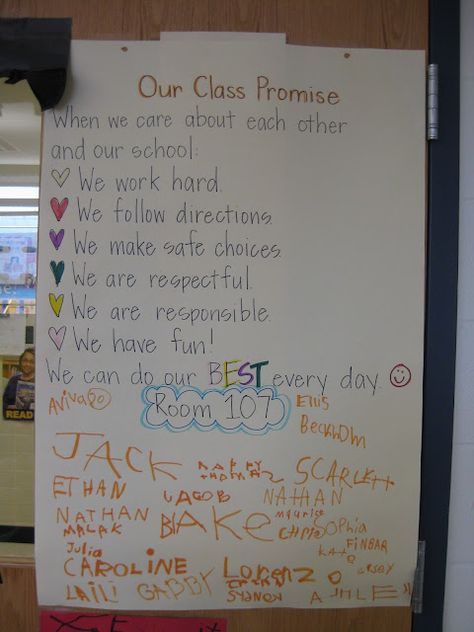 Our Class Promise
When we care about each other
and our school:
We work hard.
We follow directions.
We make safe choices.
We are respectful.
We are responsible.
We have fun!
We can do our BEST every day.
Room 107
Ellis
Beckham
JACK
SCARLETT
ETHAN
JACOB
NATHAN
NATHAN
MAURICE
MALAK
BLAKE
SOPHIA
FINBAR
Julia
KATE
CAROLINE
Lorenzo
LAILI
GABBY
SYDNEY
READ